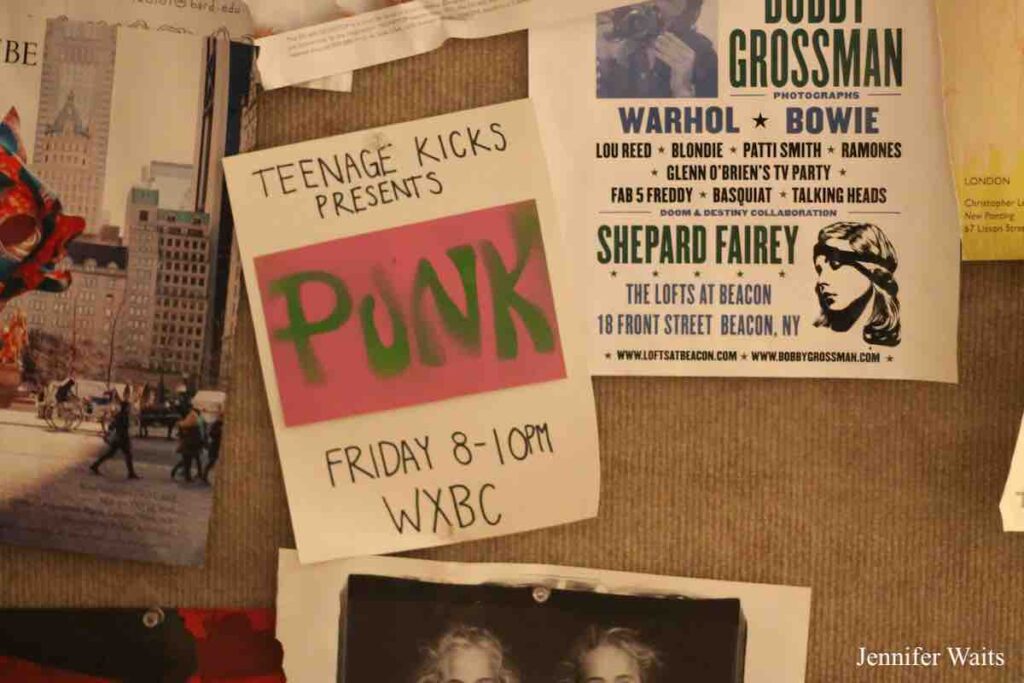 TEENAGE KICKS
PRESENTS
PUNK
FRIDAY 8-10PM
WXBC
BOBBY
GROSSMAN
PHOTOGRAPHS
WARHOL ★ BOWIE
LOU REED ★ BLONDIE ★ PATTI SMITH ★ RAMONES
★ GLENN O'BRIEN'S TV PARTY ★
FAB 5 FREDDY ★ BASQUIAT ★ TALKING HEADS
DOOM & DESTINY COLLABORATION
SHEPARD FAIREY
★ ★ ★ ★ ★
THE LOFTS AT BEACON
18 FRONT STREET BEACON, NY
★ WWW.LOFTSATBEACON.COM ★ WWW.BOBBYGROSSMAN.COM ★
LONDON
Christopher
New Painting
67 Lisson
Jennifer Waits